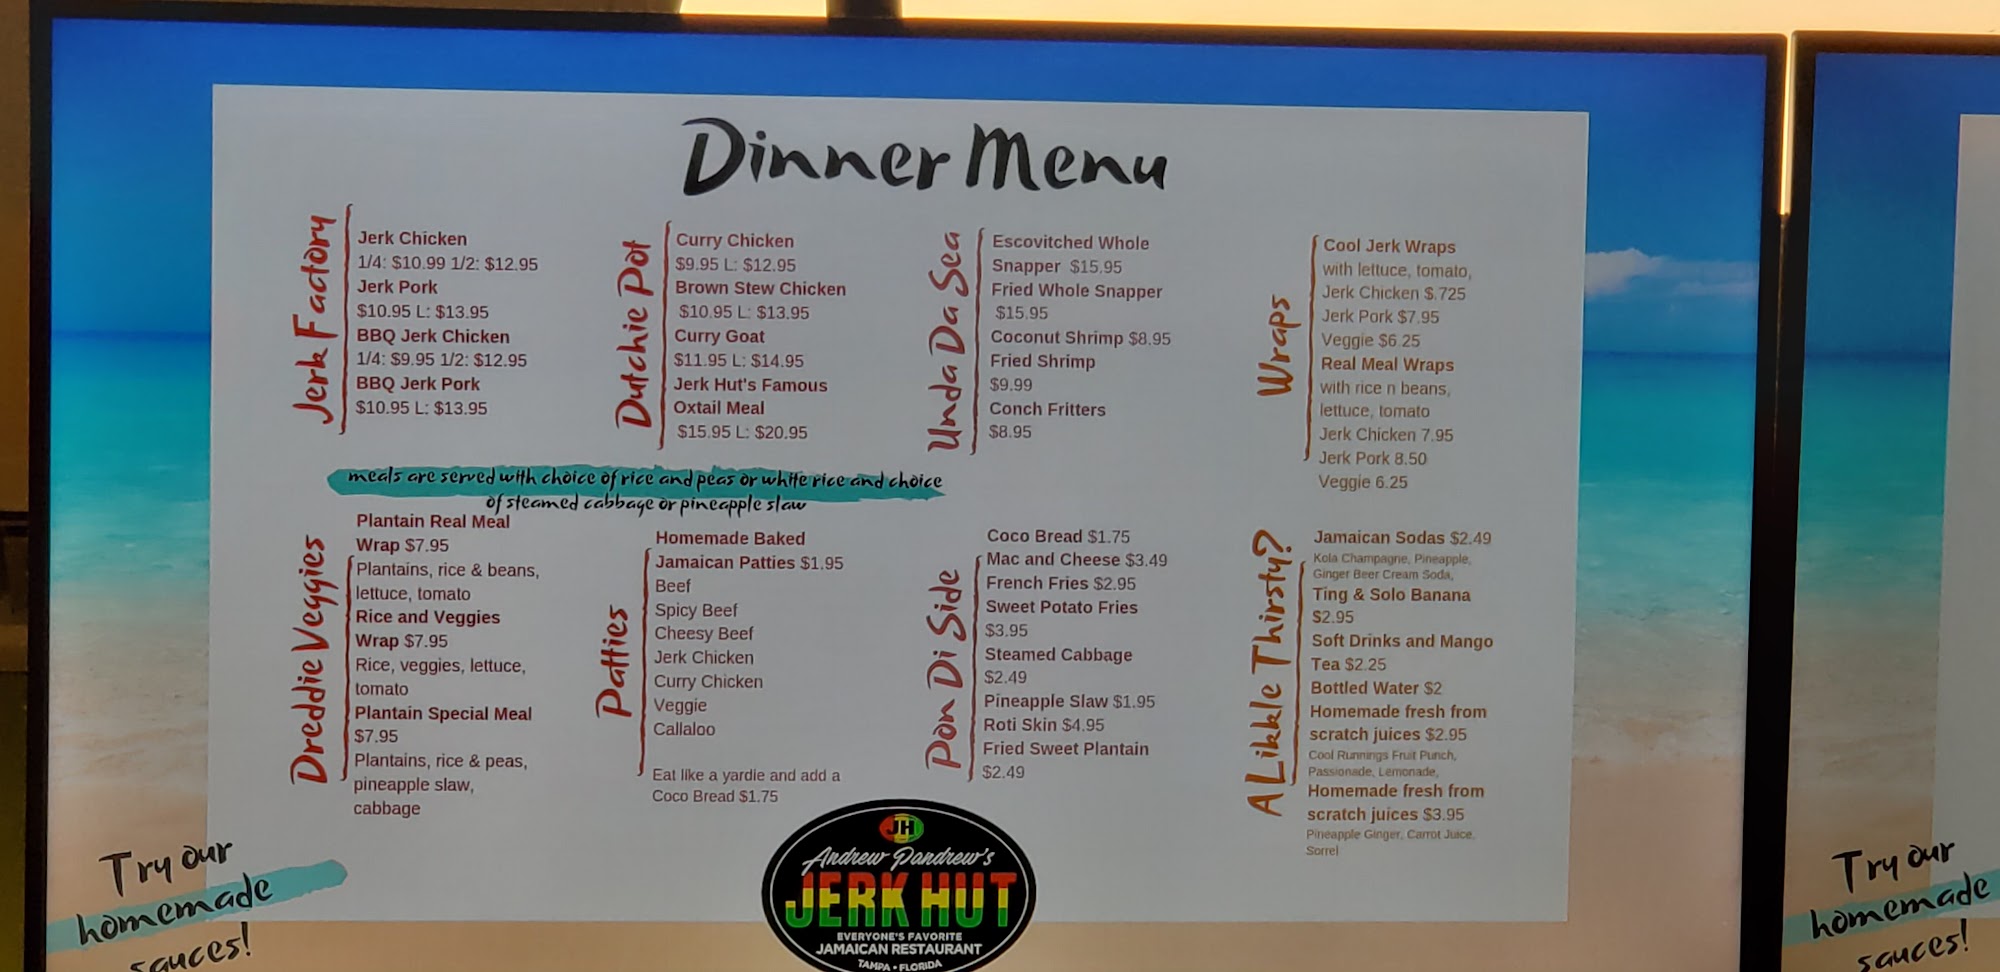 Dinner Menu
Jerk Factory
Jerk Chicken
1/4: $10.99 1/2: $12.95
Jerk Pork
$10.95 L: $13.95
BBQ Jerk Chicken
1/4: $9.95 1/2: $12.95
BBQ Jerk Pork
$10.95 L: $13.95
Dutchie Pot
Curry Chicken
$9.95 L: $12.95
Brown Stew Chicken
$10.95 L: $13.95
Curry Goat
$11.95 L: $14.95
Jerk Hut's Famous
Oxtail Meal
$15.95 L: $20.95
Unda Da Sea
Escovitched Whole
Snapper $15.95
Fried Whole Snapper
$15.95
Coconut Shrimp $8.95
Fried Shrimp
$9.99
Conch Fritters
$8.95
Wraps
Cool Jerk Wraps
with lettuce, tomato,
Jerk Chicken $.725
Jerk Pork $7.95
Veggie $6.25
Real Meal Wraps
with rice n beans,
lettuce, tomato
Jerk Chicken 7.95
Jerk Pork 8.50
Veggie 6.25
meals are served with choice of rice and peas or white rice and choice
of steamed cabbage or pineapple slaw
Dreddie Veggies
Plantain Real Meal
Wrap $7.95
Plantains, rice & beans,
lettuce, tomato
Rice and Veggies
Wrap $7.95
Rice, veggies, lettuce,
tomato
Plantain Special Meal
$7.95
Plantains, rice & peas,
pineapple slaw,
cabbage
Patties
Homemade Baked
Jamaican Patties $1.95
Beef
Spicy Beef
Cheesy Beef
Jerk Chicken
Curry Chicken
Veggie
Callaloo
Eat like a yardie and add a
Coco Bread $1.75
Pon Di Side
Coco Bread $1.75
Mac and Cheese $3.49
French Fries $2.95
Sweet Potato Fries
$3.95
Steamed Cabbage
$2.49
Pineapple Slaw $1.95
Roti Skin $4.95
Fried Sweet Plantain
$2.49
A Likkle Thirsty?
Jamaican Sodas $2.49
Kola Champagne, Pineapple,
Ginger Beer Cream Soda,
Ting & Solo Banana
$2.95
Soft Drinks and Mango
Tea $2.25
Bottled Water $2
Homemade fresh from
scratch juices $2.95
Cool Runnings Fruit Punch,
Passionade, Lemonade,
Homemade fresh from
scratch juices $3.95
Pineapple Ginger, Carrot Juice,
Sorrel
Try our
homemade
sauces!
JH
Andrew Pandrew's
JERK HUT
EVERYONE'S FAVORITE
JAMAICAN RESTAURANT
TAMPA • FLORIDA
Try our
homemade
sauces!